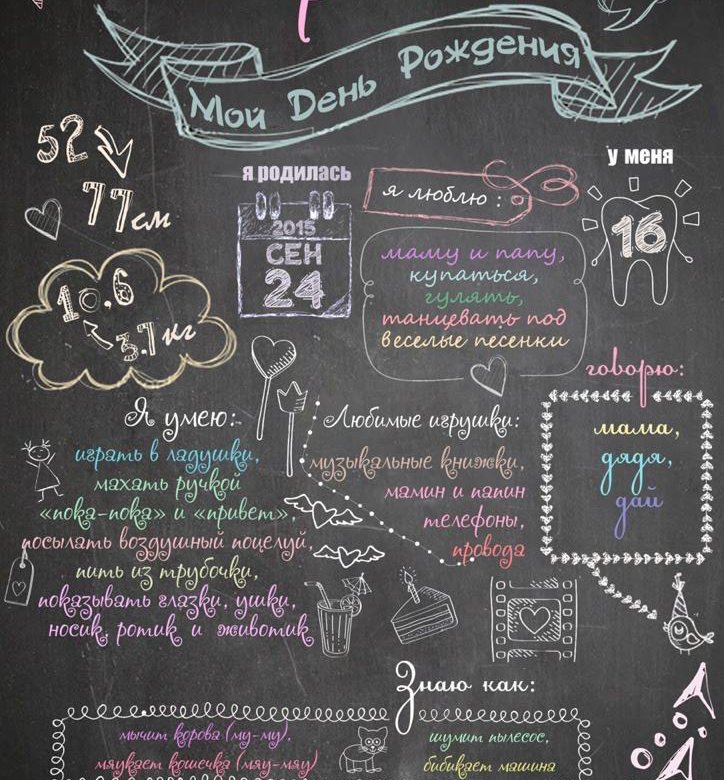 Мой День Рождения
52
77 см
10.6
3.7 кг
я родилась
2015
СЕН
24
я люблю :
маму и папу,
купаться,
гулять,
танцевать под
веселые песенки
у меня
16
говорю:
мама,
дядя,
дай
Я умею:
играть в ладушки,
махать ручкой
«пока-пока» и «привет»,
посылать воздушный поцелуй,
пить из трубочки,
показывать глазки, ушки,
носик, ротик и животик
Любимые игрушки:
музыкальные книжки,
мамин и папин
телефоны,
провода
Знаю как:
мычит корова (му-му),
мяукает кошечка (мяу-мяу)
шумит пылесос,
бибикает машина